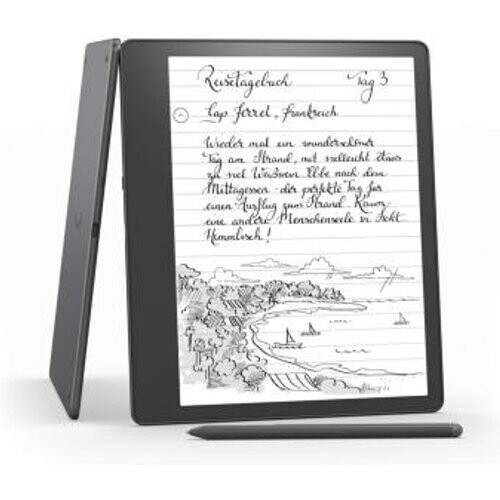 Reisetagebuch Tag 3
Cap Ferret, Frankreich
Wieder mal ein wunderschöner
Tag am Strand, mit vielleicht etwas
zu viel Weißwein. Ebbe nach dem
Mittagessen - der perfekte Tag für
einen Ausflug zum Strand. Kaum
eine andere Menschenseele in Sicht.
Himmlisch!